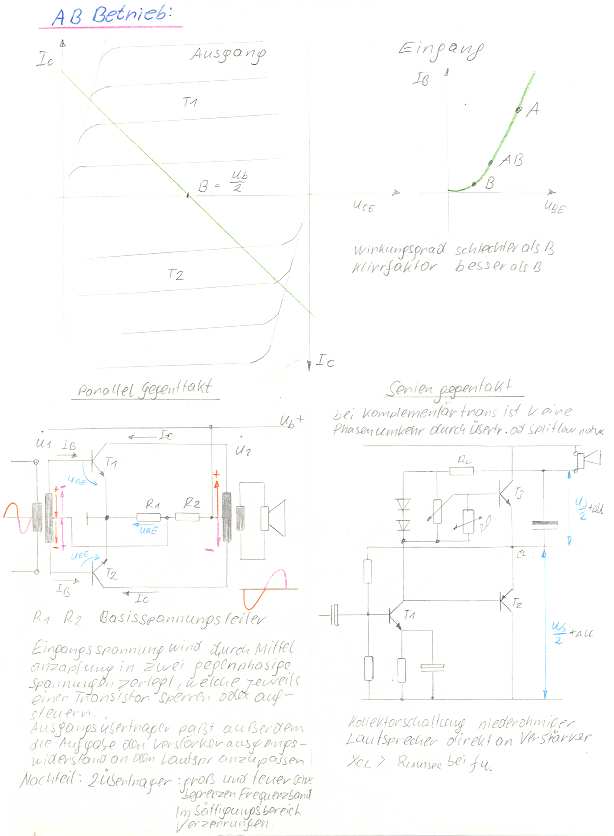 AB Betrieb:
Ic
Ausgang
T1
B = Ub/2
UCE
T2
Ic
Eingang
IB
A
AB
B
UBE
Wirkungsgrad schlechter als B
Klirrfaktor besser als B
Parallel Gegentakt
Ub+
U1
IB
Ic
U2
T1
UBE
+
-
R1
R2
UBE
+
-
UBE
T2
IB
Ic
R1 R2 Basisspannungsteiler
Eingangsspannung wird durch Mittel
anzapfung in zwei gegenphasige
Spannungen zerlegt, welche jeweils
einer Transistor sperren oder auf-
steuern.
Ausgangsübertrager paßt außerdem
die Aufgabe den Verstärkerausgangs-
widerstand an den Lautspr anzupassen
Nachteil: 2 Übertrager: groß und teuer
begrenzen Frequenzband
Im Sättigungsbereich
Verzerrungen
Serien gegentakt
bei Komplementärtrans ist keine
Phasenumkehr durch Übertr. od Splitt
RL
T3
Ub/2
T1
T2
Ub/2
Kollektorschaltung niederohmiger
Lautsprecher direkt an Verstärker
bei fu.